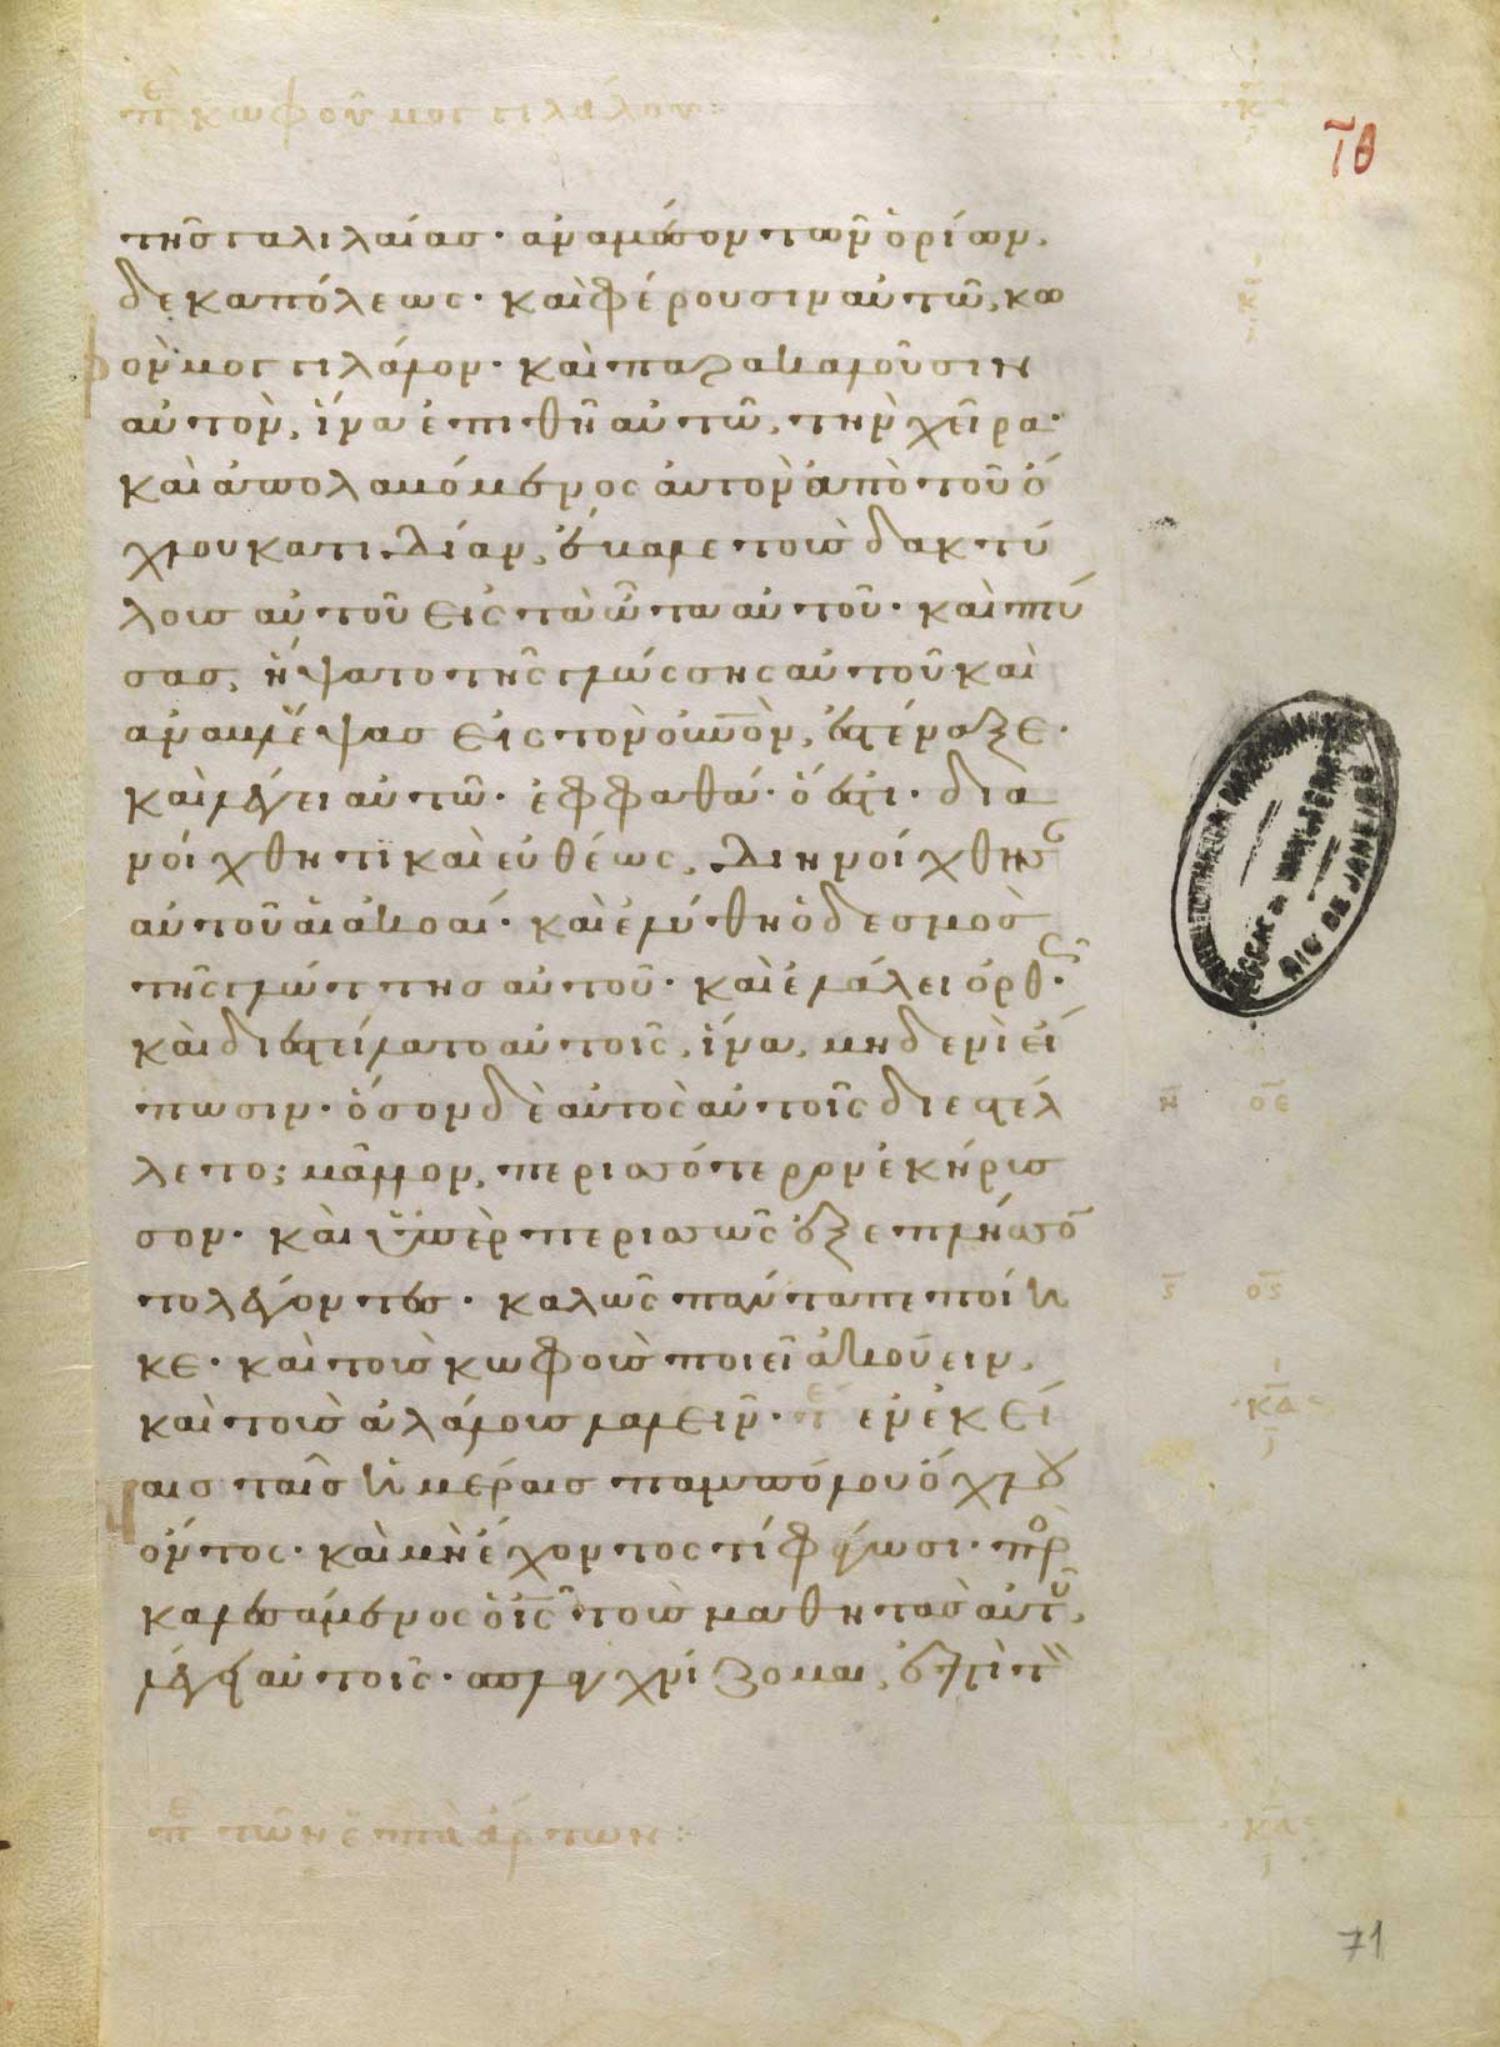 πε κωφοῦ μογγιλάλου:
κ
Οθ
τῆς γαλιλαίας· ἀναμέσον τῶν ὁρίων,
δεκαπόλεως· καὶ φέρουσιν αὐτῶ, κω
φὸν μογγιλάλον· καὶ παρακαλοῦσιν
αὐτὸν, ἵνα ἐπιθῆ αὐτῶ, τὴν χεῖρα·
καὶ ἀπολαβόμενος αὐτὸν ἀπὸ τοῦ ὄ
χλου κατιδίαν, ἔβαλε τοὺς δακτύ
λους αὐτοῦ εἰς τὰ ὦτα αὐτοῦ· καὶ πτύ
σας, ἥψατο τῆς γλώσσης αὐτοῦ καὶ
ἀναβλέψας εἰς τὸν οὐνὸν, ἐστέναξε·
καὶ λέγει αὐτῶ· ἐφφαθά· ὅ ἐστι· δια
νοίχθητι καὶ εὐθέως, διηνοίχθησ
αὐτοῦ αἱ ἀκοαί· καὶ ἐλύθη ὁ δεσμὸς
τῆς γλώττης αὐτοῦ· καὶ ἐλάλει ὀρθῶς·
καὶ διεστείλατο αὐτοῖς, ἵνα, μηδενὶ εἴ
πωσιν· ὅσον δὲ αὐτὸς αὐτοῖς διεστέλ
λετο; μᾶλλον, περισσότερον ἐκήρυσ
σον· καὶ ὑπὲρ περισσῶς ἐξεπλήσσο
το λέγοντες· καλῶς πάντα πεποίη
κε· καὶ τοὺς κωφοὺς ποιεῖ ἀκούειν,
καὶ τοὺς ἀλάλους λαλεῖν· τε ἐν ἐκεί
αις ταῖς ἡμέραις παμπόλλου ὄχλου
ὄντος· καὶ μὴ ἔχοντος τί φάγωσι· προς
καλεσάμενος ὁ ις τοὺς μαθητὰς αὐτοῦ,
λέγει αὐτοῖς· σπλαγχνίζομαι, ἐπὶ τὸν
η οε
ς ος
κα
πε τῶν ἑπτὰ ἄρτων:
κα
71
RIO DE JANEIRO